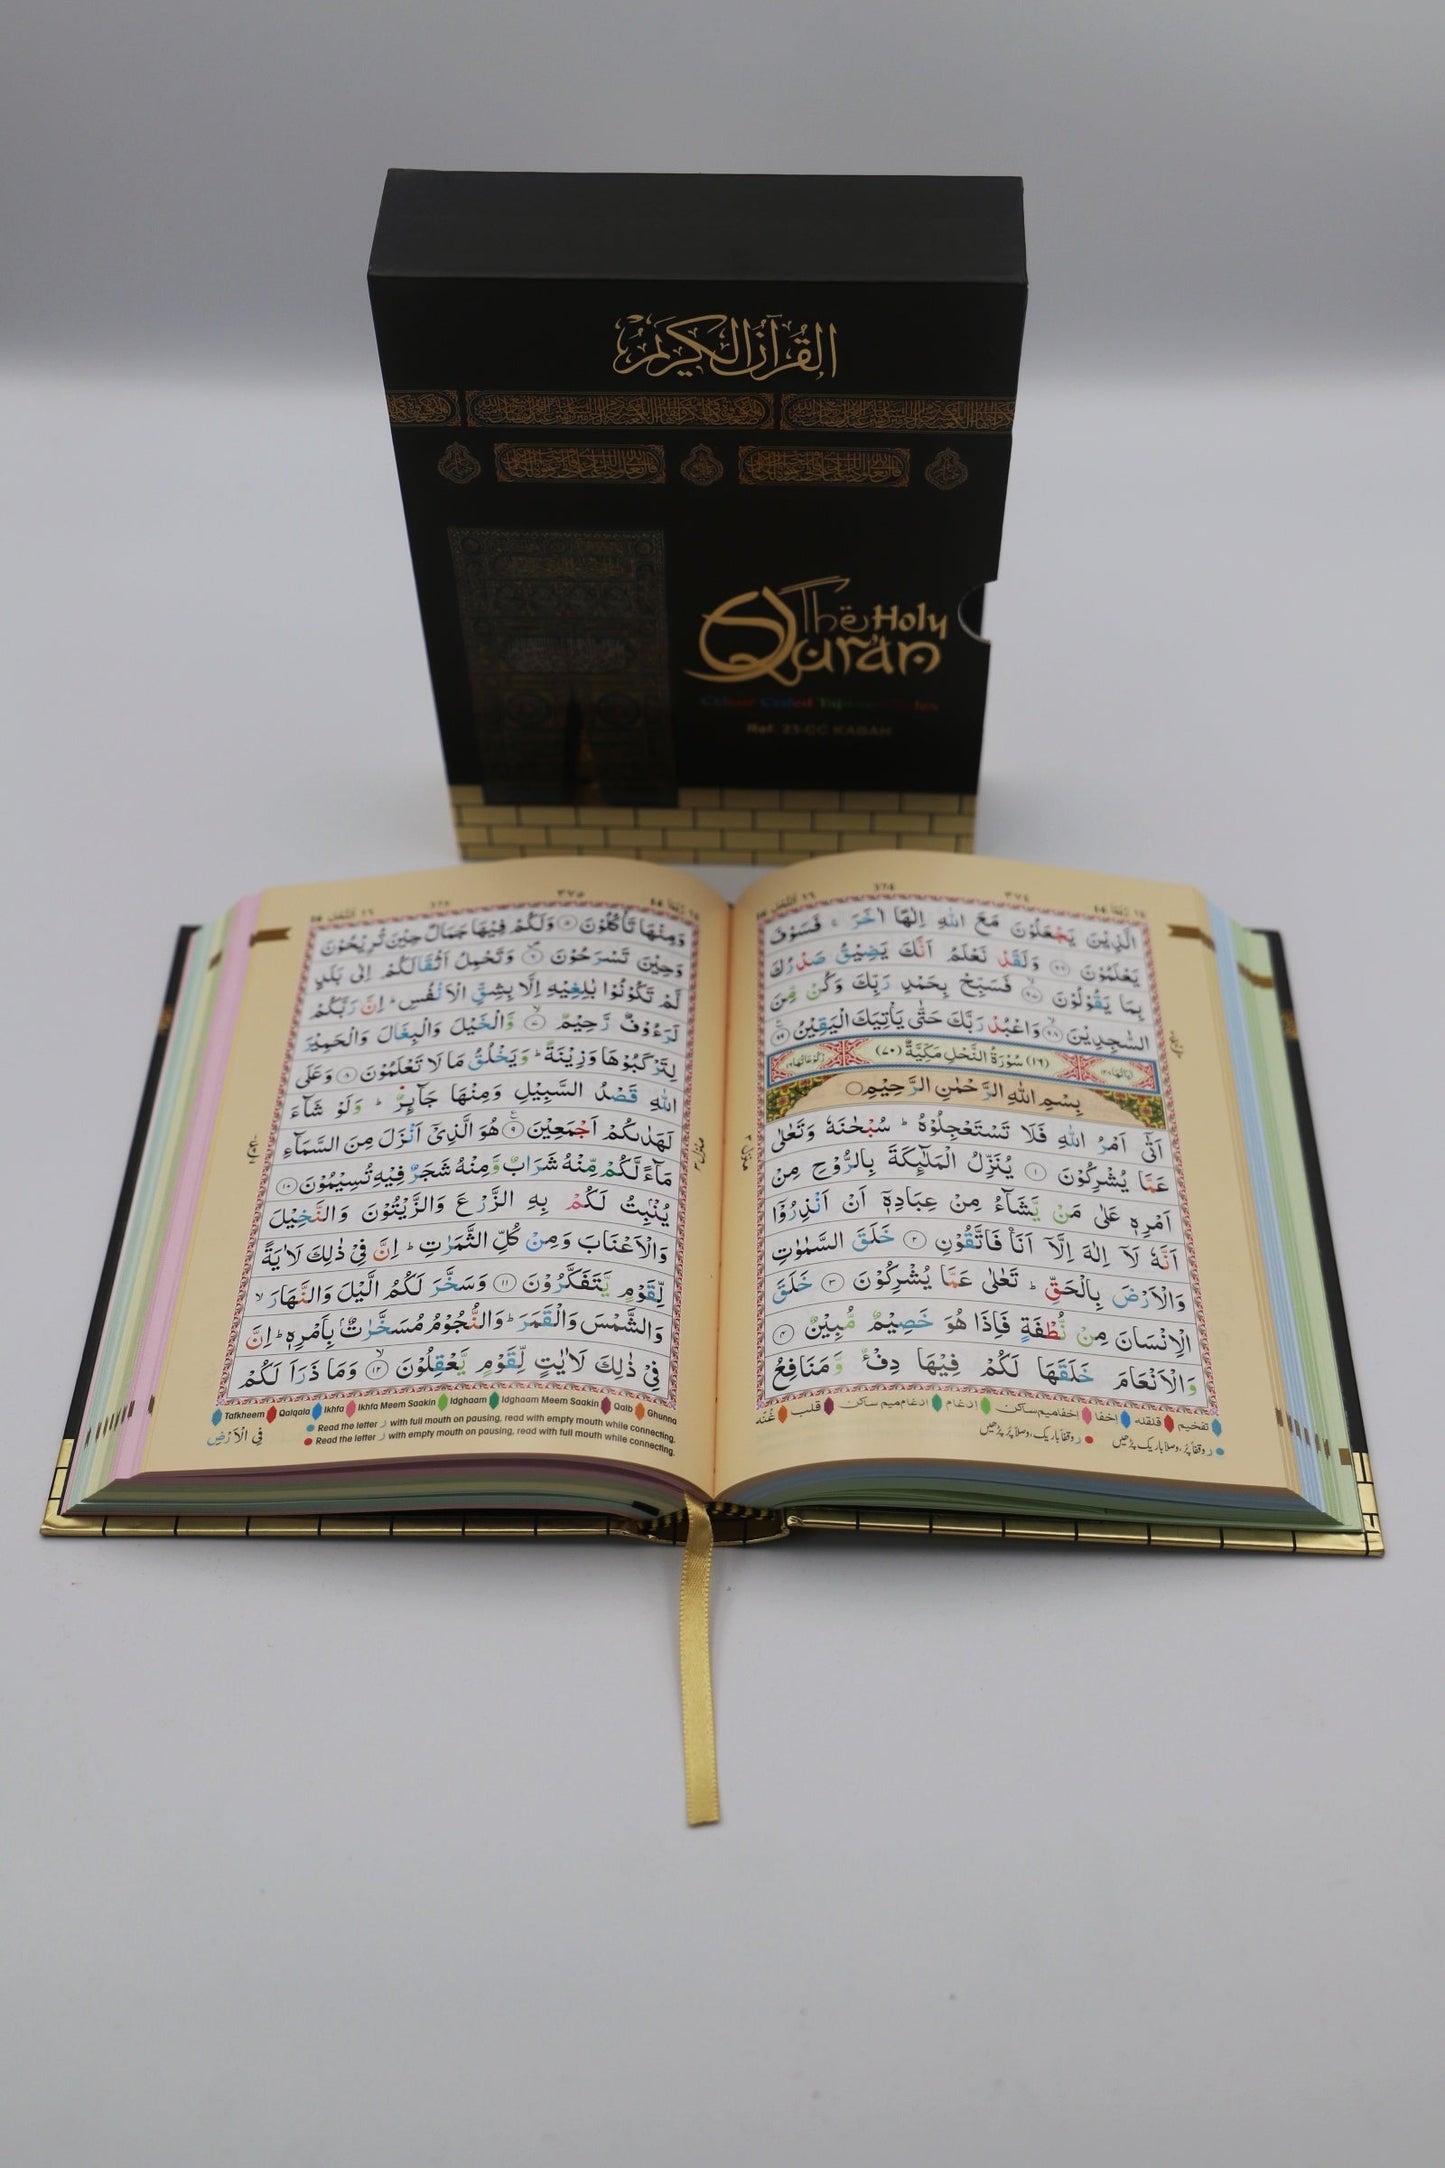 القرآن الكريم
The Holy
Qur'an
Colour Coded Tajweed Rules
Ref. 23-CC KABAH
٣٧٤
374
الَّذِيْنَ يَجْعَلُوْنَ مَعَ اللّٰهِ اِلٰهًا اٰخَرَ ۚ فَسَوْفَ
يَعْلَمُوْنَ ﴿۹۶﴾ وَلَقَدْ نَعْلَمُ اَنَّكَ يَضِيْقُ صَدْرُكَ
بِمَا يَقُوْلُوْنَ ﴿۹۷﴾ فَسَبِّحْ بِحَمْدِ رَبِّكَ وَكُنْ مِّنَ
السّٰجِدِيْنَ ﴿۹۸﴾ وَاعْبُدْ رَبَّكَ حَتّٰى يَاْتِيَكَ الْيَقِيْنُ ﴿۹۹﴾
(١٦) سُوْرَةُ النَّحْلِ مَكِّيَّةٌ (٧٠)
بِسْمِ اللّٰهِ الرَّحْمٰنِ الرَّحِيْمِ
اَتٰٓى اَمْرُ اللّٰهِ فَلَا تَسْتَعْجِلُوْهُ ؕ سُبْحٰنَهٗ وَتَعٰلٰى
عَمَّا يُشْرِكُوْنَ ﴿۱﴾ يُنَزِّلُ الْمَلٰٓئِكَةَ بِالرُّوْحِ مِنْ
اَمْرِهٖ عَلٰى مَنْ يَّشَآءُ مِنْ عِبَادِهٖۤ اَنْ اَنْذِرُوْۤا
اَنَّهٗ لَاۤ اِلٰهَ اِلَّاۤ اَنَا فَاتَّقُوْنِ ﴿۲﴾ خَلَقَ السَّمٰوٰتِ
وَالْاَرْضَ بِالْحَقِّ ؕ تَعٰلٰى عَمَّا يُشْرِكُوْنَ ﴿۳﴾ خَلَقَ
الْاِنْسَانَ مِنْ نُّطْفَةٍ فَاِذَا هُوَ خَصِيْمٌ مُّبِيْنٌ ﴿۴﴾
وَالْاَنْعَامَ خَلَقَهَا لَكُمْ فِيْهَا دِفْءٌ وَّمَنَافِعُ
تفخیم قلقلہ اخفا اخفامیم ساکن ادغام ادغام میم ساکن قلب غنہ
ر وقفاً پُر، وصلاً باریک پڑھیں ر وقفاً باریک، وصلاً پر پڑھیں
٣٧٥
375
وَمِنْهَا تَاْكُلُوْنَ ﴿۵﴾ وَلَكُمْ فِيْهَا جَمَالٌ حِيْنَ تُرِيْحُوْنَ
وَحِيْنَ تَسْرَحُوْنَ ﴿۶﴾ وَتَحْمِلُ اَثْقَالَكُمْ اِلٰى بَلَدٍ
لَّمْ تَكُوْنُوْا بٰلِغِيْهِ اِلَّا بِشِقِّ الْاَنْفُسِ ؕ اِنَّ رَبَّكُمْ
لَرَءُوْفٌ رَّحِيْمٌ ﴿۷﴾ وَّالْخَيْلَ وَالْبِغَالَ وَالْحَمِيْرَ
لِتَرْكَبُوْهَا وَزِيْنَةً ؕ وَيَخْلُقُ مَا لَا تَعْلَمُوْنَ ﴿۸﴾ وَعَلَى
اللّٰهِ قَصْدُ السَّبِيْلِ وَمِنْهَا جَآئِرٌ ؕ وَلَوْ شَآءَ
لَهَدٰىكُمْ اَجْمَعِيْنَ ﴿۹﴾ هُوَ الَّذِيْۤ اَنْزَلَ مِنَ السَّمَآءِ
مَآءً لَّكُمْ مِّنْهُ شَرَابٌ وَّمِنْهُ شَجَرٌ فِيْهِ تُسِيْمُوْنَ ﴿۱۰﴾
يُنْۢبِتُ لَكُمْ بِهِ الزَّرْعَ وَالزَّيْتُوْنَ وَالنَّخِيْلَ
وَالْاَعْنَابَ وَمِنْ كُلِّ الثَّمَرٰتِ ؕ اِنَّ فِيْ ذٰلِكَ لَاٰيَةً
لِّقَوْمٍ يَّتَفَكَّرُوْنَ ﴿۱۱﴾ وَسَخَّرَ لَكُمُ الَّيْلَ وَالنَّهَارَ ۙ
وَالشَّمْسَ وَالْقَمَرَ ؕ وَالنُّجُوْمُ مُسَخَّرٰتٌۢ بِاَمْرِهٖ ؕ اِنَّ
فِيْ ذٰلِكَ لَاٰيٰتٍ لِّقَوْمٍ يَّعْقِلُوْنَ ﴿۱۲﴾ وَمَا ذَرَاَ لَكُمْ
Tafkheem Qalqala Ikhfa Ikhfa Meem Saakin Idghaam Idghaam Meem Saakin Qalb Ghunna
Read the letter ر with full mouth on pausing, read with empty mouth while connecting.
Read the letter ر with empty mouth on pausing, read with full mouth while connecting.
فِي الْاَرْضِ